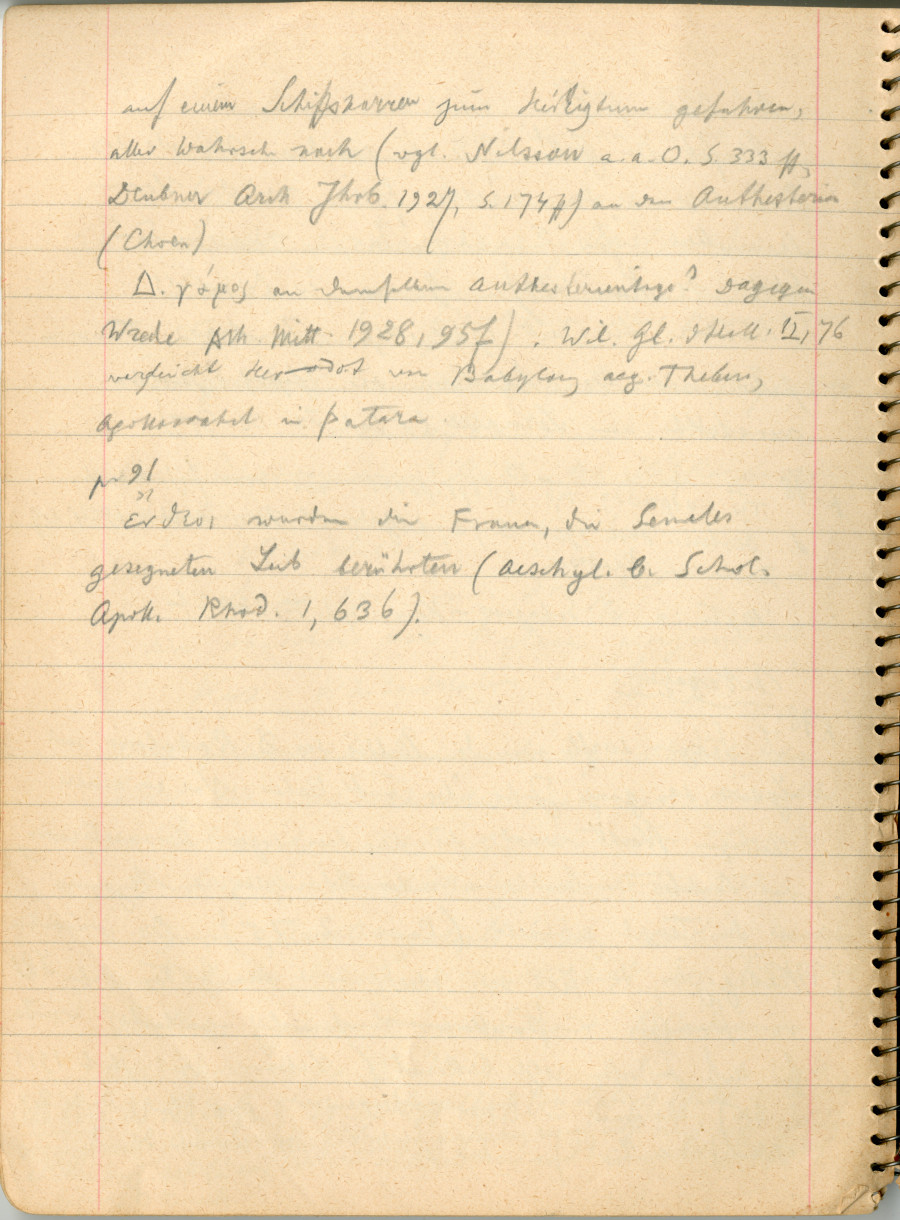 auf einem Schiffskarren zum Heiligtum gefahren,
aller Wahrsch nach (vgl. Nilsson a.a.O. S. 333 ff,
Deubner Arch Jhrb. 1927, S. 174 ff) an den Anthesterien
(Choen)
Δ. γάμος an demselben Anthesterientage? Dagegen
Wrede Ath Mitt. 1928, 95f). Wil. Gl. d Hell. II, 76
vergleicht Herodot von Babylon, aeg. Theben,
Apollo in Patara
p. 91
ἔνθεοι wurden die Frauen, die Semeles
gesegneten Leib berührten (Aeschyl. b. Schol.
Apoll. Rhod. 1, 636).